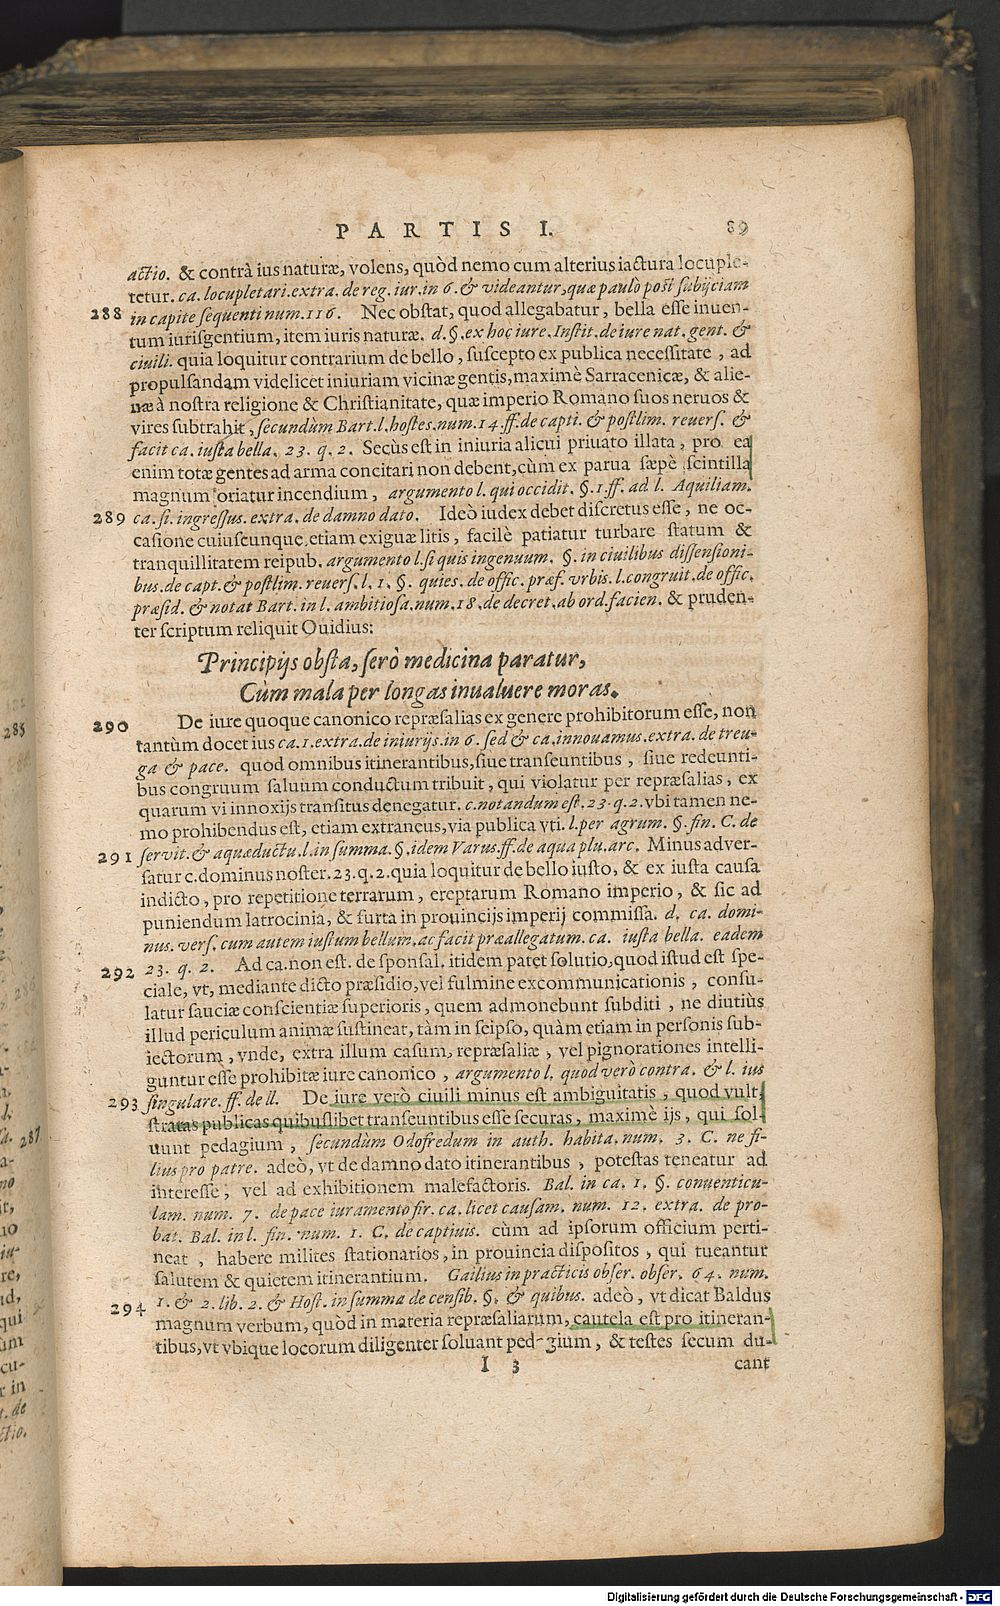 PARTIS I. 89
actio. & contrà ius naturæ, volens, quòd nemo cum alterius iactura locuple-
tetur. ca. locupletari. extra. de reg. iur. in 6. & videantur, quæ paulò post subijciam
288 in capite sequenti num. 116. Nec obstat, quod allegabatur, bella esse inuen-
tum iurisgentium, item iuris naturæ. d. §. ex hoc iure. Instit. de iure nat. gent. &
ciuili. quia loquitur contrarium de bello, suscepto ex publica necessitate, ad
propulsandam videlicet iniuriam vicinæ gentis, maximè Sarracenicæ, & alie-
næ à nostra religione & Christianitate, quæ imperio Romano suos neruos &
vires subtrahit, secundùm Bart. l. hostes. num. 14. ff. de capti. & postlim. reuers. &
facit ca. iusta bella. 23. q. 2. Secùs est in iniuria alicui priuato illata, pro ea
enim totæ gentes ad arma concitari non debent, cùm ex parua sæpè scintilla
magnum oriatur incendium, argumento l. qui occidit. §. 1. ff. ad l. Aquiliam.
289 ca. si. ingressus. extra. de damno dato. Ideò iudex debet discretus esse, ne oc-
casione cuiuscunque, etiam exiguæ litis, facilè patiatur turbare statum &
tranquillitatem reipub. argumento l. si quis ingenuum. §. in ciuilibus dissensioni-
bus. de capt. & postlim. reuers. l. 1. §. quies. de offic. præf. vrbis. l. congruit. de offic.
præsid. & notat Bart. in l. ambitiosa. num. 18. de decret. ab ord. facien. & pruden-
ter scriptum reliquit Ouidius:
Principijs obsta, serò medicina paratur,
Cùm mala per longas inualuere moras.
290 De iure quoque canonico repræsalias ex genere prohibitorum esse, non
tantùm docet ius ca. 1. extra. de iniurijs. in 6. sed & ca. innouamus. extra. de treu-
ga & pace. quod omnibus itinerantibus, siue transeuntibus, siue redeunti-
bus congruum saluum conductum tribuit, qui violatur per repræsalias, ex
quarum vi innoxijs transitus denegatur. c. notandum est. 23. q. 2. vbi tamen ne-
mo prohibendus est, etiam extraneus, via publica vti. l. per agrum. §. fin. C. de
291 servit. & aquæductu. l. in summa. §. idem Varus. ff. de aqua plu. arc. Minus adver-
satur c. dominus noster. 23. q. 2. quia loquitur de bello iusto, & ex iusta causa
indicto, pro repetitione terrarum, ereptarum Romano imperio, & sic ad
puniendum latrocinia, & furta in prouincijs imperij commissa. d. ca. domi-
nus. vers. cum autem iustum bellum. ac facit præallegatum. ca. iusta bella. eadem
292 23. q. 2. Ad ca. non est. de sponsal. itidem patet solutio, quod istud est spe-
ciale, vt, mediante dicto præsidio, vel fulmine excommunicationis, consu-
latur sauciæ conscientiæ superioris, quem admonebunt subditi, ne diutiùs
illud periculum animæ sustineat, tàm in seipso, quàm etiam in personis sub-
iectorum, vnde, extra illum casum, repræsaliæ, vel pignorationes intelli-
guntur esse prohibitæ iure canonico, argumento l. quod verò contra. & l. ius
293 singulare. ff. de ll. De iure verò ciuili minus est ambiguitatis, quod vult,
stratas publicas quibuslibet transeuntibus esse securas, maximè ijs, qui sol-
uunt pedagium, secundùm Odofredum in auth. habita. num. 3. C. ne fi-
lius pro patre. adeò, vt de damno dato itinerantibus, potestas teneatur ad
interesse, vel ad exhibitionem malefactoris. Bal. in ca. 1. §. conuenticu-
lam. num. 7. de pace iuramento fir. ca. licet causam. num. 12. extra. de pro-
bat. Bal. in l. fin. num. 1. C. de captiuis. cùm ad ipsorum officium perti-
neat, habere milites stationarios, in prouincia dispositos, qui tueantur
salutem & quietem itinerantium. Gailius in practicis obser. obser. 64. num.
1. & 2. lib. 2. & Host. in summa de censib. §. & quibus. adeò, vt dicat Baldus
294 magnum verbum, quòd in materia repræsaliarum, cautela est pro itineran-
tibus, vt vbique locorum diligenter soluant pedagium, & testes secum du-
I 3 cant
Digitalisierung gefördert durch die Deutsche Forschungsgemeinschaft - DFG